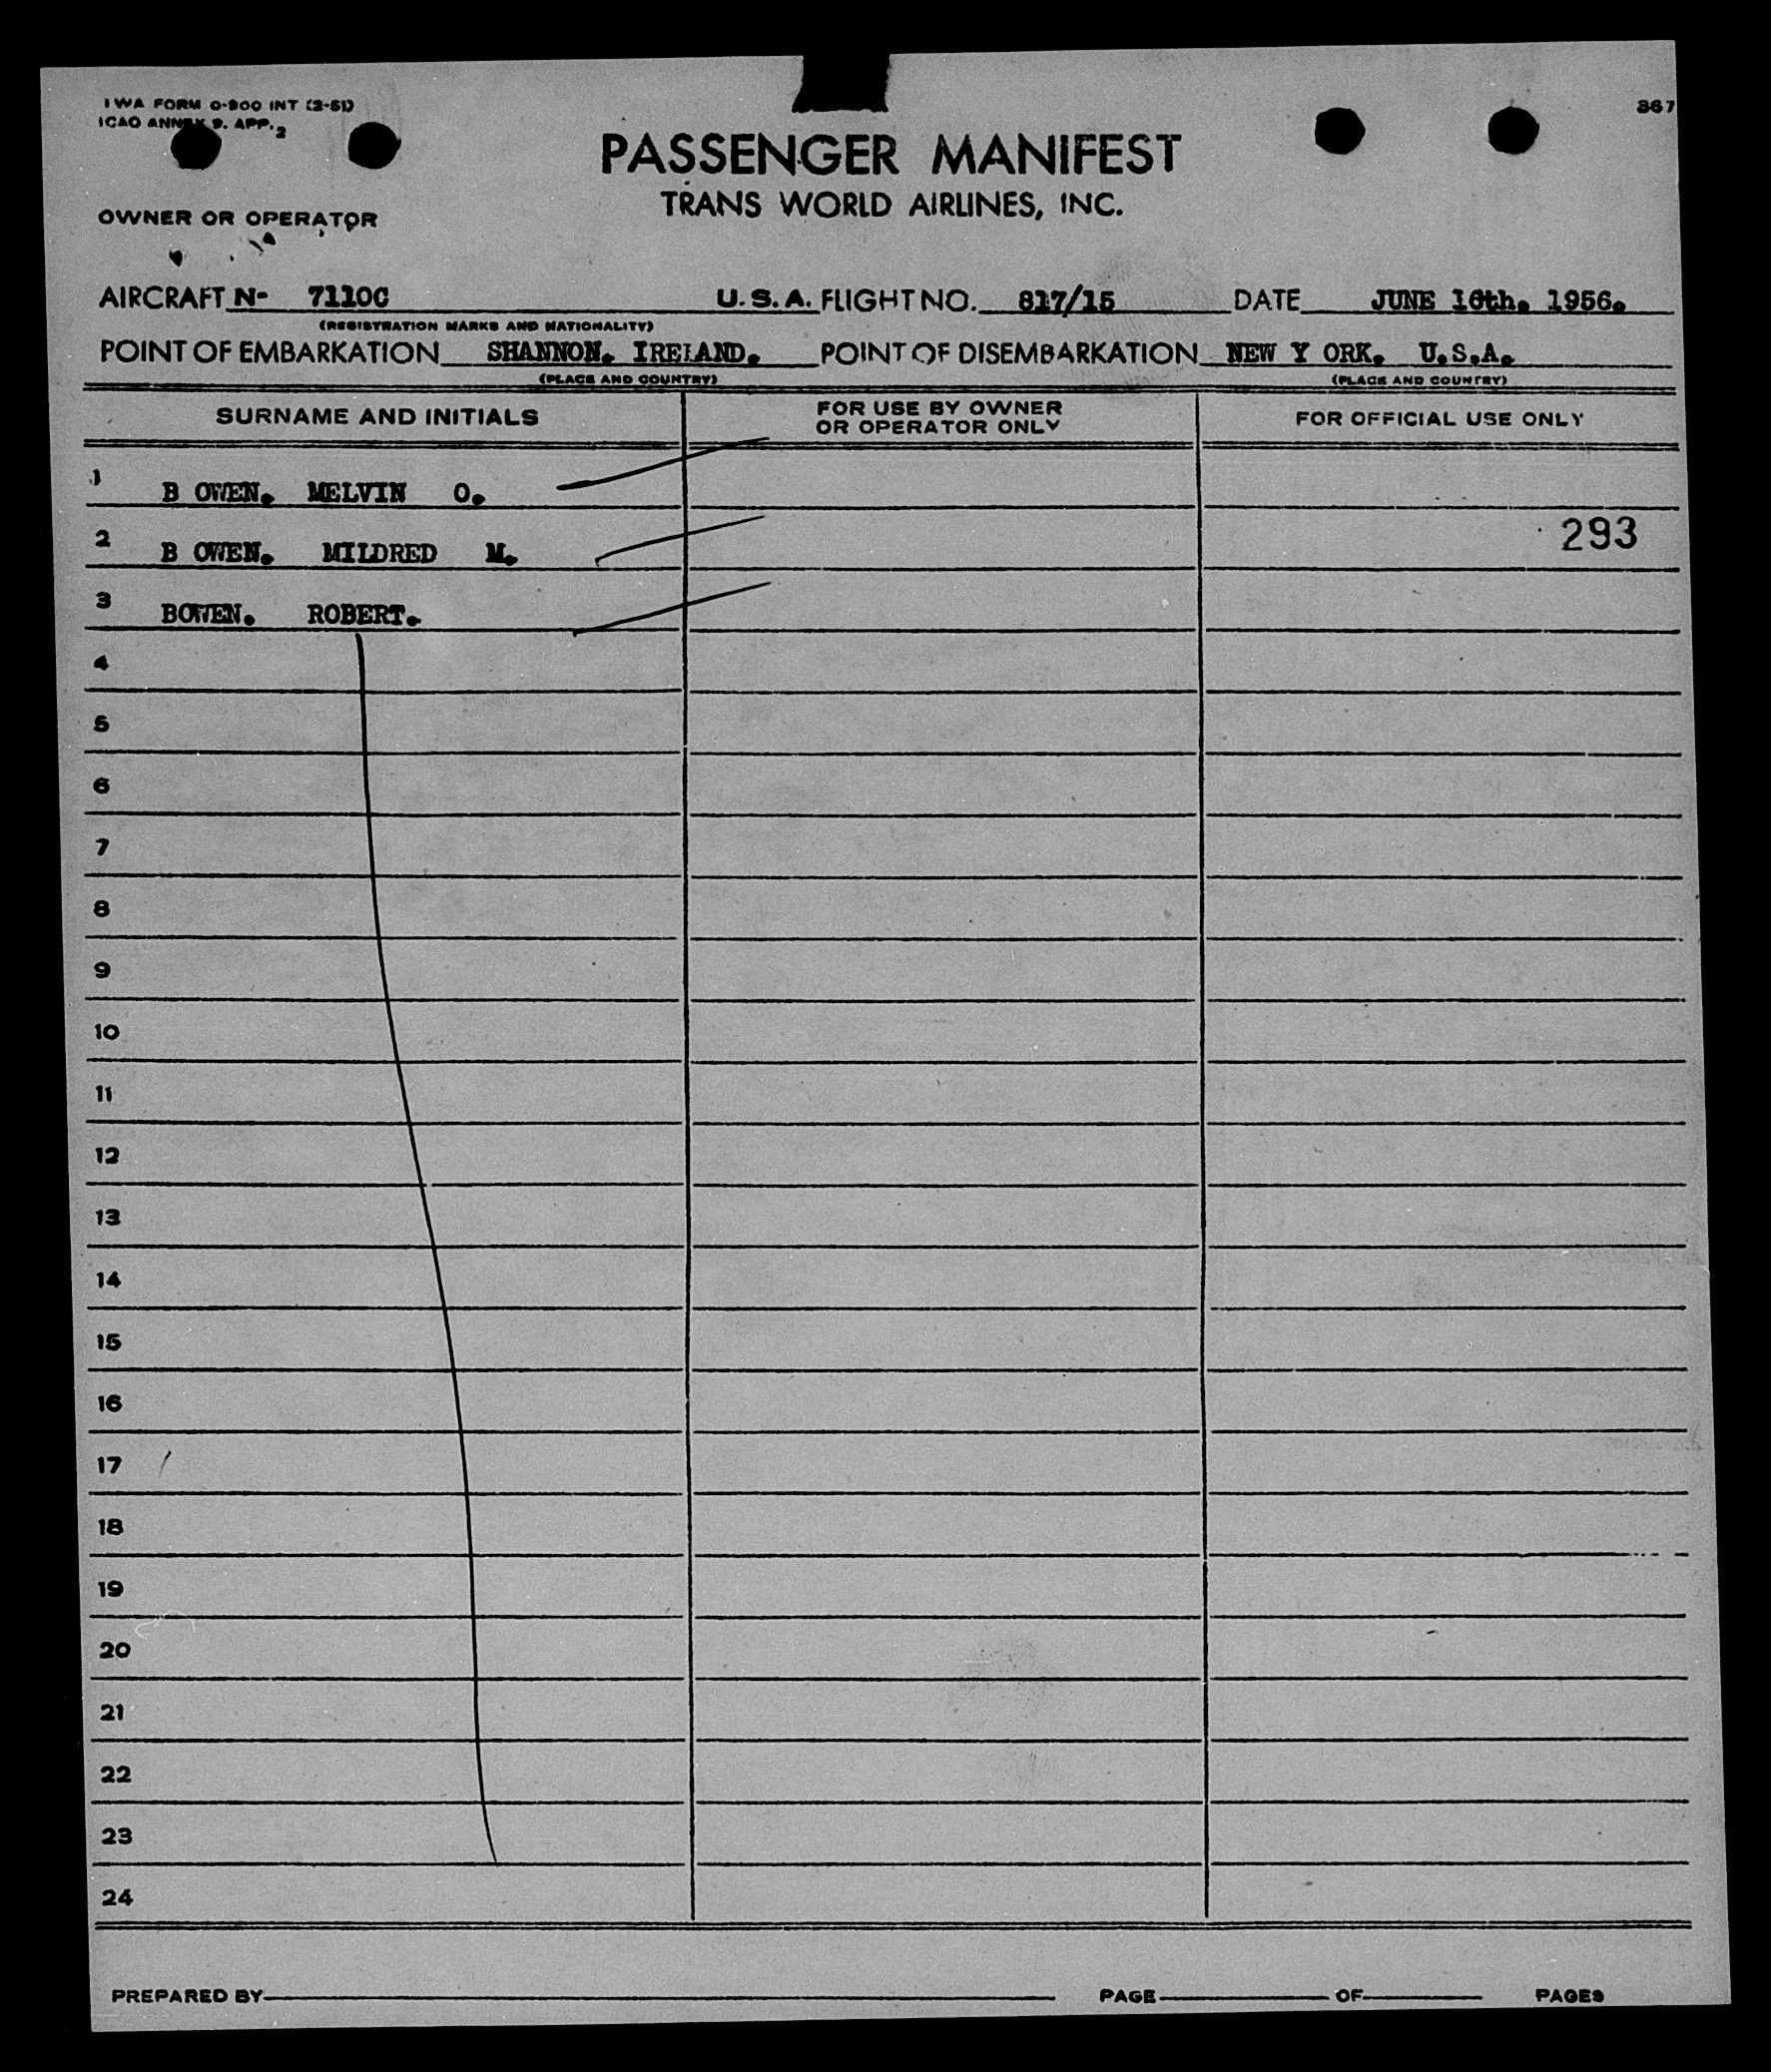 TWA FORM O-900 INT (2-51) 867
ICAO ANNEX 9. APP. 2
PASSENGER MANIFEST
TRANS WORLD AIRLINES, INC.
OWNER OR OPERATOR
AIRCRAFT N- 7110C U.S.A. FLIGHT NO. 817/15 DATE JUNE 16th. 1956.
(REGISTRATION MARKS AND NATIONALITY)
POINT OF EMBARKATION SHANNON. IRELAND. POINT OF DISEMBARKATION NEW Y ORK. U.S.A.
(PLACE AND COUNTRY) (PLACE AND COUNTRY)
SURNAME AND INITIALS FOR USE BY OWNER OR OPERATOR ONLY FOR OFFICIAL USE ONLY
1 B OWEN. MELVIN O.
2 B OWEN. MILDRED M. 293
3 BOWEN. ROBERT.
4
5
6
7
8
9
10
11
12
13
14
15
16
17
18
19
20
21
22
23
24
PREPARED BY PAGE OF PAGES